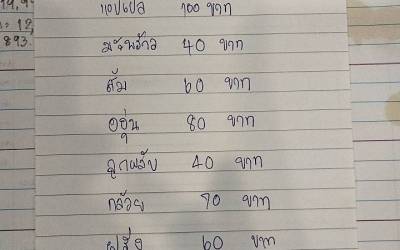 แอปเปิล 100 บาท
มะพร้าว 40 บาท
ส้ม 60 บาท
องุ่น 80 บาท
ลูกพลับ 40 บาท
กล้วย 70 บาท
ฝรั่ง 60 บาท
893